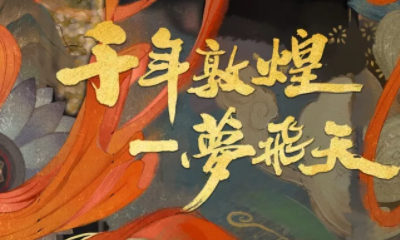 千年敦煌
一夢飛天